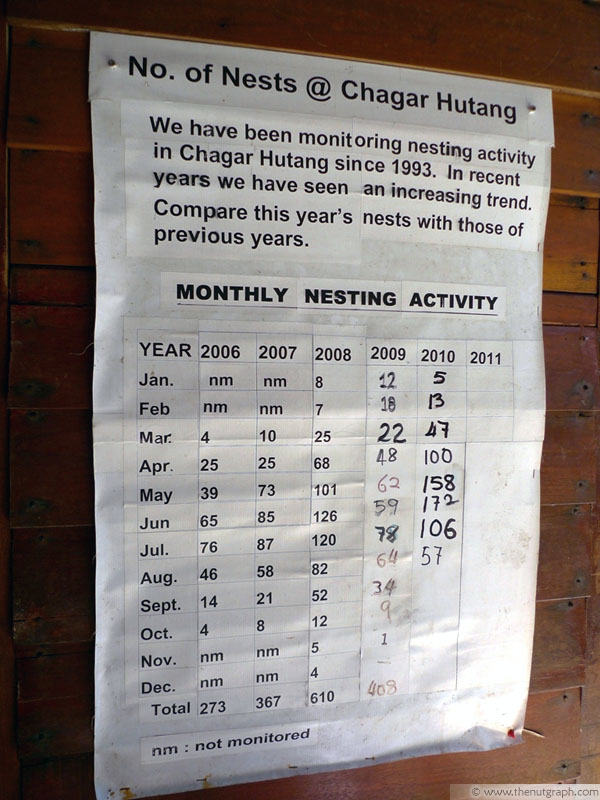 No. of Nests @ Chagar Hutang
We have been monitoring nesting activity
in Chagar Hutang since 1993. In recent
years we have seen an increasing trend.
Compare this year's nests with those of
previous years.
MONTHLY NESTING ACTIVITY
YEAR 2006 2007 2008 2009 2010 2011
Jan. nm nm 8 12 5
Feb nm nm 7 18 13
Mar. 4 10 25 22 47
Apr. 25 25 68 48 100
May 39 73 101 62 158
Jun 65 85 126 59 172
Jul. 76 87 120 78 106
Aug. 46 58 82 64 57
Sept. 14 21 52 34
Oct. 4 8 12 9
Nov. nm nm 5 1
Dec. nm nm 4 –
Total 273 367 610 408
nm : not monitored
© www.thenutgraph.com